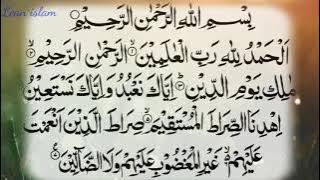 Lean islam
بِسْمِ اللّٰهِ الرَّحْمٰنِ الرَّحِيْمِ
اَلْحَمْدُ لِلّٰهِ رَبِّ الْعٰلَمِيْنَ ۙ﴿۱﴾ الرَّحْمٰنِ الرَّحِيْمِ ۙ﴿۲﴾
مٰلِكِ يَوْمِ الدِّيْنِ ؕ﴿۳﴾ اِيَّاكَ نَعْبُدُ وَاِيَّاكَ نَسْتَعِيْنُ ؕ﴿۴﴾
اِهْدِنَا الصِّرَاطَ الْمُسْتَقِيْمَ ۙ﴿۵﴾ صِرَاطَ الَّذِيْنَ اَنْعَمْتَ
عَلَيْهِمْ ۙ﴿۶﴾ غَيْرِ الْمَغْضُوْبِ عَلَيْهِمْ وَلَا الضَّآلِّيْنَ ﴿۷﴾